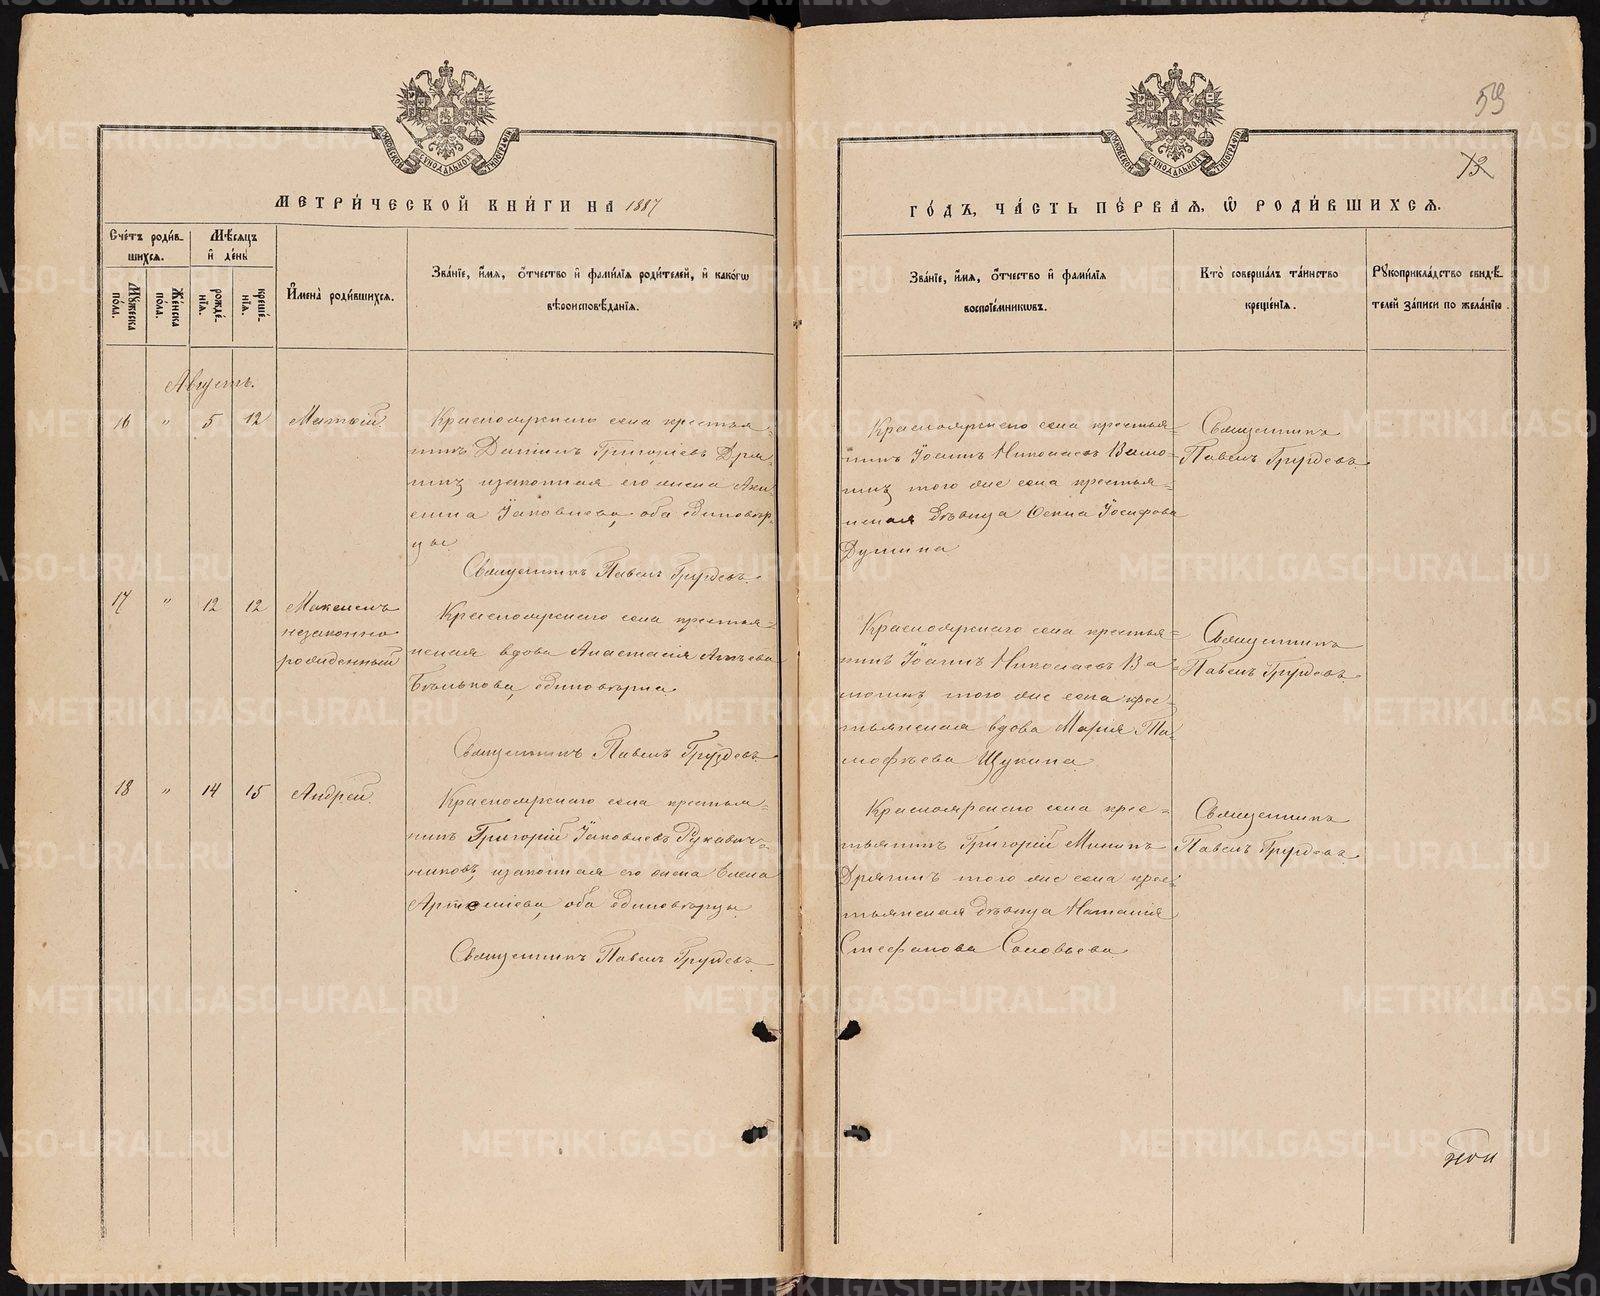 59
МЕТРИ́ЧЕСКОЙ КНИ́ГИ НА 1887
Сче́тъ роди́в-
шихсѧ.
Мѣ́сѧцъ
и҆ де́нь
Мꙋ́жеска по́ла.
Же́нска по́ла.
рожде́-
нїѧ.
креще́-
нїѧ.
И҆мена̀ роди́вшихсѧ.
Зва́нїе, и҆́мѧ, ѻ҆́тчество и҆ фами́лїѧ роди́телей, и҆ како́гѡ
вѣроисповѣ́данїѧ.
Августъ.
16 " 5 12 Матѳій
Красноярскаго села крестья-
нинъ Даніилъ Григорьевъ Дря-
гинъ, и законная его жена Аки-
лина Іаковлева, оба единовѣр-
цы.
Священникъ Павелъ Груздевъ.
17 " 12 12 Максимъ
незаконно
рожденный
Красноярскаго села крестья-
нская вдова Анастасія
Бѣлькова, единовѣрка
Священникъ Павелъ Груздевъ
18 " 14 15 Андрей.
Красноярскаго села крестья-
нинъ Григорій Іаковлевъ Рукавич-
никовъ, и законная его жена Елена
Артеміева, оба единовѣрцы
Священникъ Павелъ Груздевъ
ГО́ДЪ, ЧА́СТЬ ПЕ́РВАѦ, Ѽ РОДИ́ВШИХСѦ.
Зва́нїе, и҆́мѧ, ѻ҆́тчество и҆ фами́лїѧ
воспрїе́мникѡвъ.
Кто̀ соверша́лъ та́инство
креще́нїѧ.
Рꙋкоприкла́дство свидѣ́-
телей за́писи по жела́нїю.
Красноярскаго села крестья-
нинъ Іоаннъ Николаевъ
того же села крестья-
нская дѣвица Іосифова
Душина
Священникъ
Павелъ Груздевъ
Красноярскаго села крестья-
нинъ Іоаннъ Николаевъ
того же села крес-
тьянская вдова Марія Ти-
мофѣева Щукина.
Священникъ
Павелъ Груздевъ
Красноярскаго села крес-
тьянинъ Григорій Мининъ
Дрягинъ того же села крес-
тьянская дѣвица Наталія
Стефанова Соловьева
Священникъ
Павелъ Груздевъ
METRIKI.GASO-URAL.RU